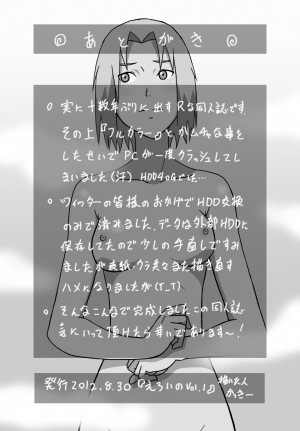 ◎ あとがき ◎
○ 実に十数年ぶりに出すRな同人誌です。
その上『フルカラー』とかムチャな事を
したせいでPCが一度クラッシュしてし
まいました(汗) HDD404では…
○ ツイッターの皆様のおかげでHDD交換
のみで済みました。データは外部HDDに
保存してたので少しの手直しですみ
ましたが表紙・ウラ表々また描き直す
ハメになりましたが(T_T)
○ そんなこんなで完成しましたこの同人誌
気にいって頂けたら幸いであります〜!
発行2012.8.30『えろいのVol.1』
描いた人